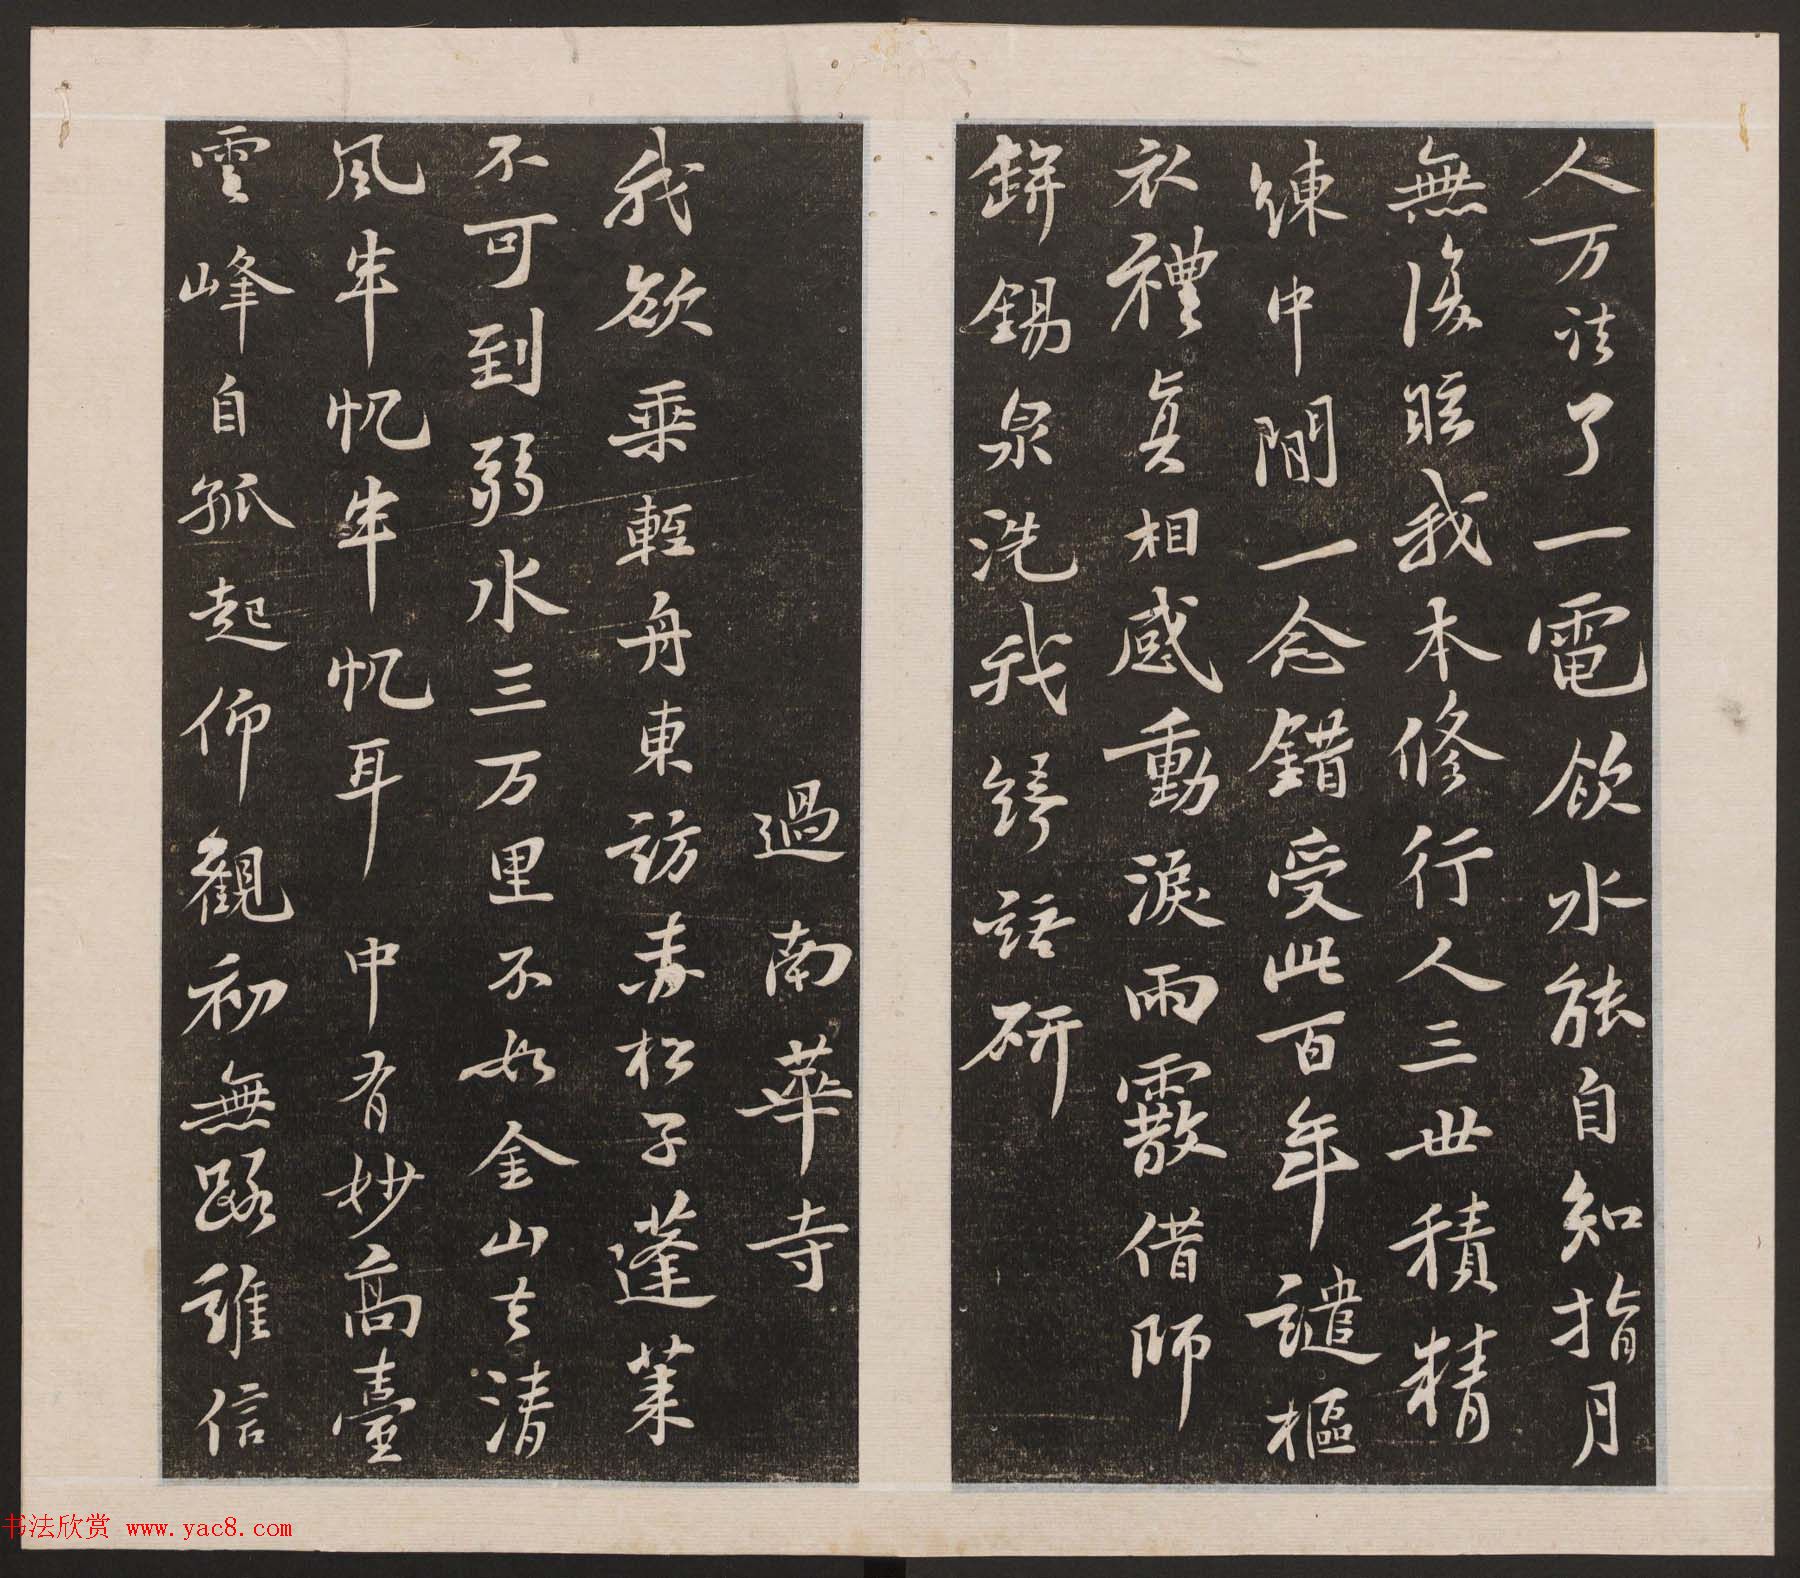 人万法了一電飲水能自知指月
無復眩我本修行人三世積精
練中間一念錯受此百年譴樞
衣禮真相感動淚雨霰借師
鉼錫泉洗我綺語研
過南華寺
我欲乗輕舟東訪赤松子蓬萊
不可到弱水三万里不如金山去清
風半帆半帆耳 中有妙高臺
雲峰自孤起仰觀初無路誰信
书法欣赏 www.yac8.com